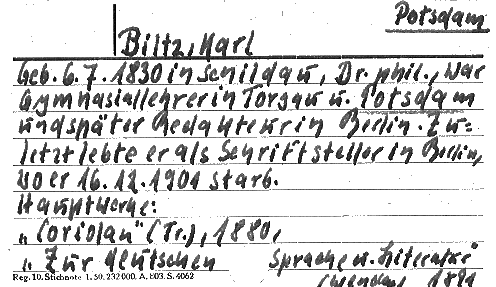 Potsdam
Biltz, Karl
Geb. 6.7.1830 in Schildau, Dr. phil., war
Gymnasiallehrer in Torgau u. Potsdam
und später Redakteur in Berlin. Zu=
letzt lebte er als Schriftsteller in Berlin,
wo er 16.12.1901 starb.
Hauptwerke:
„Coriolan" (Tr.), 1880,
„Zur deutschen Sprache u. Literatur"
Reg. 10. Stichnote 1. 50. 232000. A. 603. S. 4062
1891